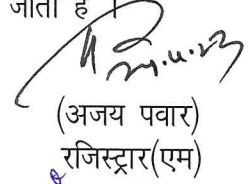 जाता है ।
(अजय पवार)
रजिस्ट्रार(एम)